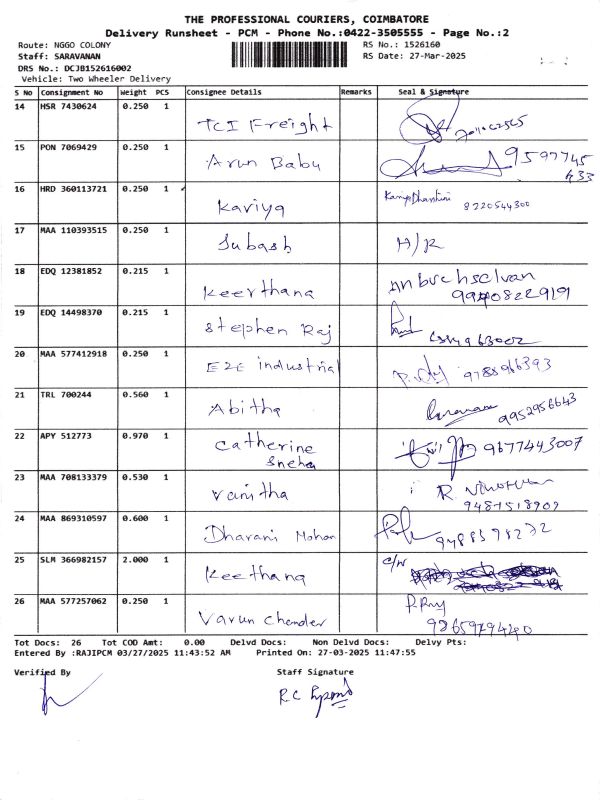 THE PROFESSIONAL COURIERS, COIMBATORE
Delivery Runsheet - PCM - Phone No.:0422-3505555 - Page No.:2
Route: NGGO COLONY RS No.: 1526160
Staff: SARAVANAN RS Date: 27-Mar-2025
DRS No.: DCJB152616002
Vehicle: Two Wheeler Delivery
S No Consignment No Weight PCS Consignee Details Remarks Seal & Signature
14 HSR 7430624 0.250 1 TCI Freight
15 PON 7069429 0.250 1 Arun Babu 9597745
633
16 HRD 360113721 0.250 1 Kaviya 8220544300
17 MAA 110393515 0.250 1 Subash H/R
18 EDQ 12381852 0.215 1 Keerthana Anbuchselvan
19 EDQ 14498370 0.215 1 Stephen Raj
20 MAA 577412918 0.250 1 E2E industrial 9788966393
21 TRL 700244 0.560 1 Abitha Saravanan 9952956643
22 APY 512773 0.970 1 Catherine
Sneha 9677443007
23 MAA 708133379 0.530 1 Vanitha R.
9487518909
24 MAA 869310597 0.600 1 Dharani Mohan 9488598272
25 SLM 366982157 2.000 1 Keethana c/n
26 MAA 577257062 0.250 1 Varun Chander
Tot Docs: 26 Tot COD Amt: 0.00 Delvd Docs: Non Delvd Docs: Delvy Pts:
Entered By :RAJIPCM 03/27/2025 11:43:52 AM Printed On: 27-03-2025 11:47:55
Verified By Staff Signature